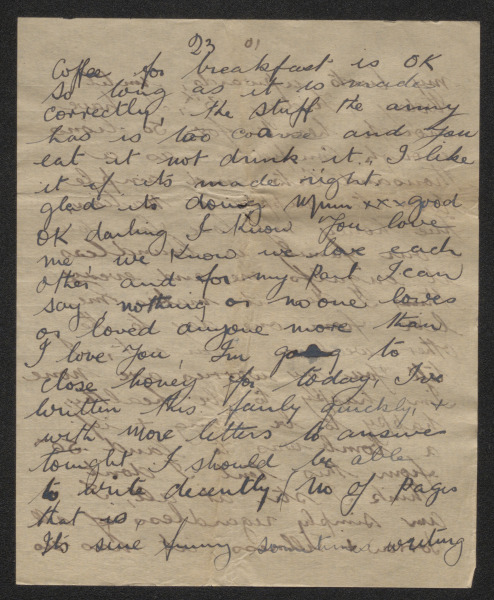 23 01
Coffee for breakfast is OK
so long as it is made
correctly, the stuff the army
has is too coarse and you
eat it not drink it., I like
it if its made right
glad its doing Mum xxx good
OK darling I know You love
me we know we love each
other and for my part I can
say nothing or no one loves
or loved anyone more than
I love You, Im going to
close honey for today, I've
written this fairly quickly, &
with more letters to answer
tonight I should be able
to write decently (No of pages
that is)
Its sure funny sometimes writing